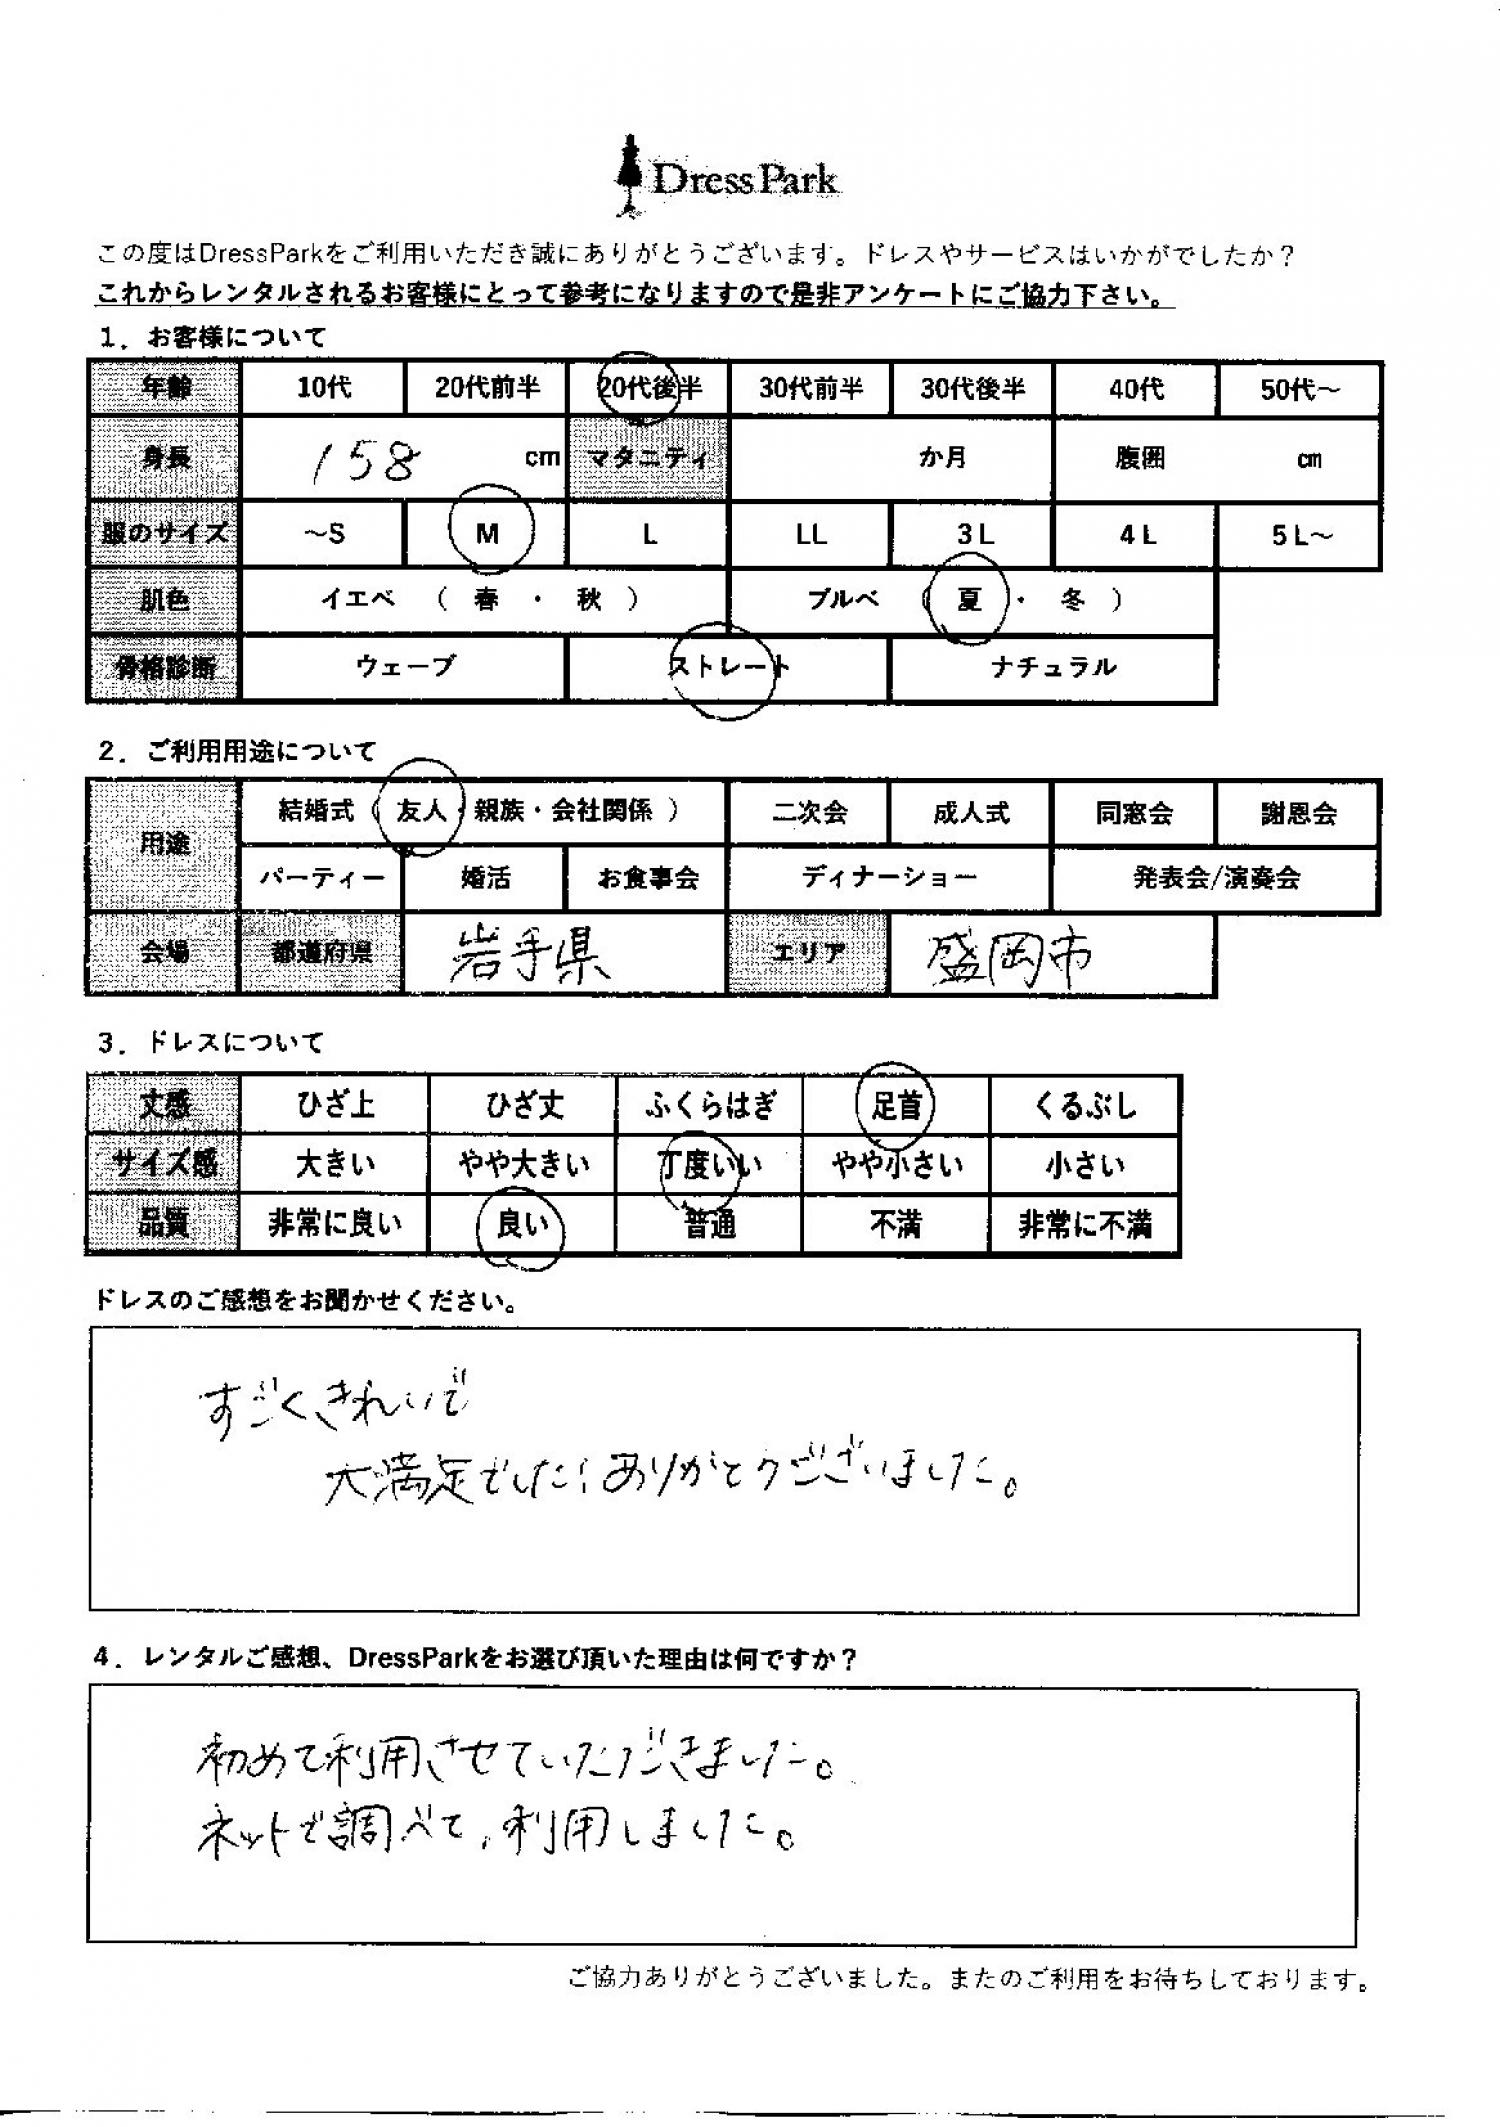 DressPark
この度はDressParkをご利用いただき誠にありがとうございます。ドレスやサービスはいかがでしたか？
これからレンタルされるお客様にとって参考になりますので是非アンケートにご協力下さい。
1．お客様について
年齢 10代 20代前半 20代後半 30代前半 30代後半 40代 50代～
身長 158 cm マタニティ か月 腹囲 cm
服のサイズ ～S M L LL 3L 4L 5L～
肌色 イエベ （ 春 ・ 秋 ） ブルベ （ 夏 ・ 冬 ）
骨格診断 ウェーブ ストレート ナチュラル
2．ご利用用途について
用途 結婚式（ 友人・親族・会社関係 ） 二次会 成人式 同窓会 謝恩会
パーティー 婚活 お食事会 ディナーショー 発表会/演奏会
会場 都道府県 岩手県 エリア 盛岡市
3．ドレスについて
丈感 ひざ上 ひざ丈 ふくらはぎ 足首 くるぶし
サイズ感 大きい やや大きい 丁度いい やや小さい 小さい
品質 非常に良い 良い 普通 不満 非常に不満
ドレスのご感想をお聞かせください。
すごくきれいで
大満足でした！ありがとうございました。
4．レンタルご感想、DressParkをお選び頂いた理由は何ですか？
初めて利用させていただきました。
ネットで調べて、利用しました。
ご協力ありがとうございました。またのご利用をお待ちしております。